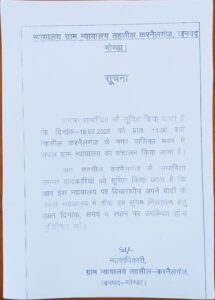 न्यायालय ग्राम न्यायालय तहसील करनैलगंज, जनपद
गोण्डा।
सूचना
सम्बन्धित को सूचित किया जाता है
कि दिनांक-19.07.2025 को प्रातः 11:00 बजे
तहसील करनैलगंज के नगर पालिका भवन में
ग्राम न्यायालय का संचालन किया जाना है।
अतः तहसील करनैलगंज से सम्बन्धित
समस्त वादकारियों को सूचित किया जाता है कि
आप इस न्यायालय पर विचाराधीन अपने वादों के
न्यायालय में शीघ्र एवं सुगम निस्तारण हेतु
उक्त दिनांक, समय व स्थान पर उपस्थित होना
सुनिश्चित करें।
Sd/-
न्यायाधिकारी,
ग्राम न्यायालय तहसील-करनैलगंज,
जनपद-गोण्डा।